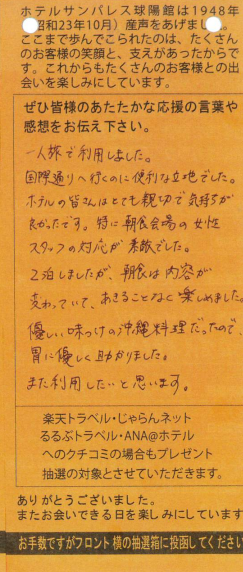 ホテルサンパレス球陽館は1948年
昭和23年10月）産声をあげまし
ここまで歩んでこられたのは、たくさん
のお客様の笑顔と、支えがあったからで
す。これからもたくさんのお客様との出
会いを楽しみにしています。
ぜひ皆様のあたたかな応援の言葉や
感想をお伝え下さい。
一人旅で利用しました。
国際通りへ行くのに便利な立地でした。
ホテルの皆さんはとても親切で気持ちが
良かったです。特に朝食会場の女性
スタッフの対応が素敵でした。
2泊しましたが、朝食は内容が
変わっていて、あきることなく楽しめました。
優しい味つけの沖縄料理だったので、
胃に優しく助かりました。
また利用したいと思います。
楽天トラベル・じゃらんネット
るるぶトラベル・ANA@ホテル
へのクチコミの場合もプレゼント
抽選の対象とさせていただきます。
ありがとうございました。
またお会いできる日を楽しみにしています
お手数ですがフロント横の抽選箱に投函してください